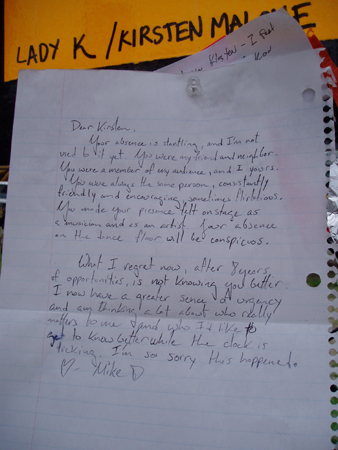 LADY K / KIRSTEN MALONE
Kirsten - I feel
Dear Kirsten,
Your absence is startling, and I'm not
used to it yet. You were my friend and neighbor.
You were a member of my audience, and I yours.
You were always the same person, consistantly
friendly and encouraging, sometimes flirtatious.
You made your presence felt on stage as
a musician and as an artist. Your absence
on the dance floor will be conspicuous.
What I regret now, after 8 years
of opportunities, is not knowing you better.
I now have a greater sense of urgency
and am thinking a lot about who really
matters to me and who I'd like to
get to know better while the clock is
ticking. I'm so sorry this happened.
♡- Mike D